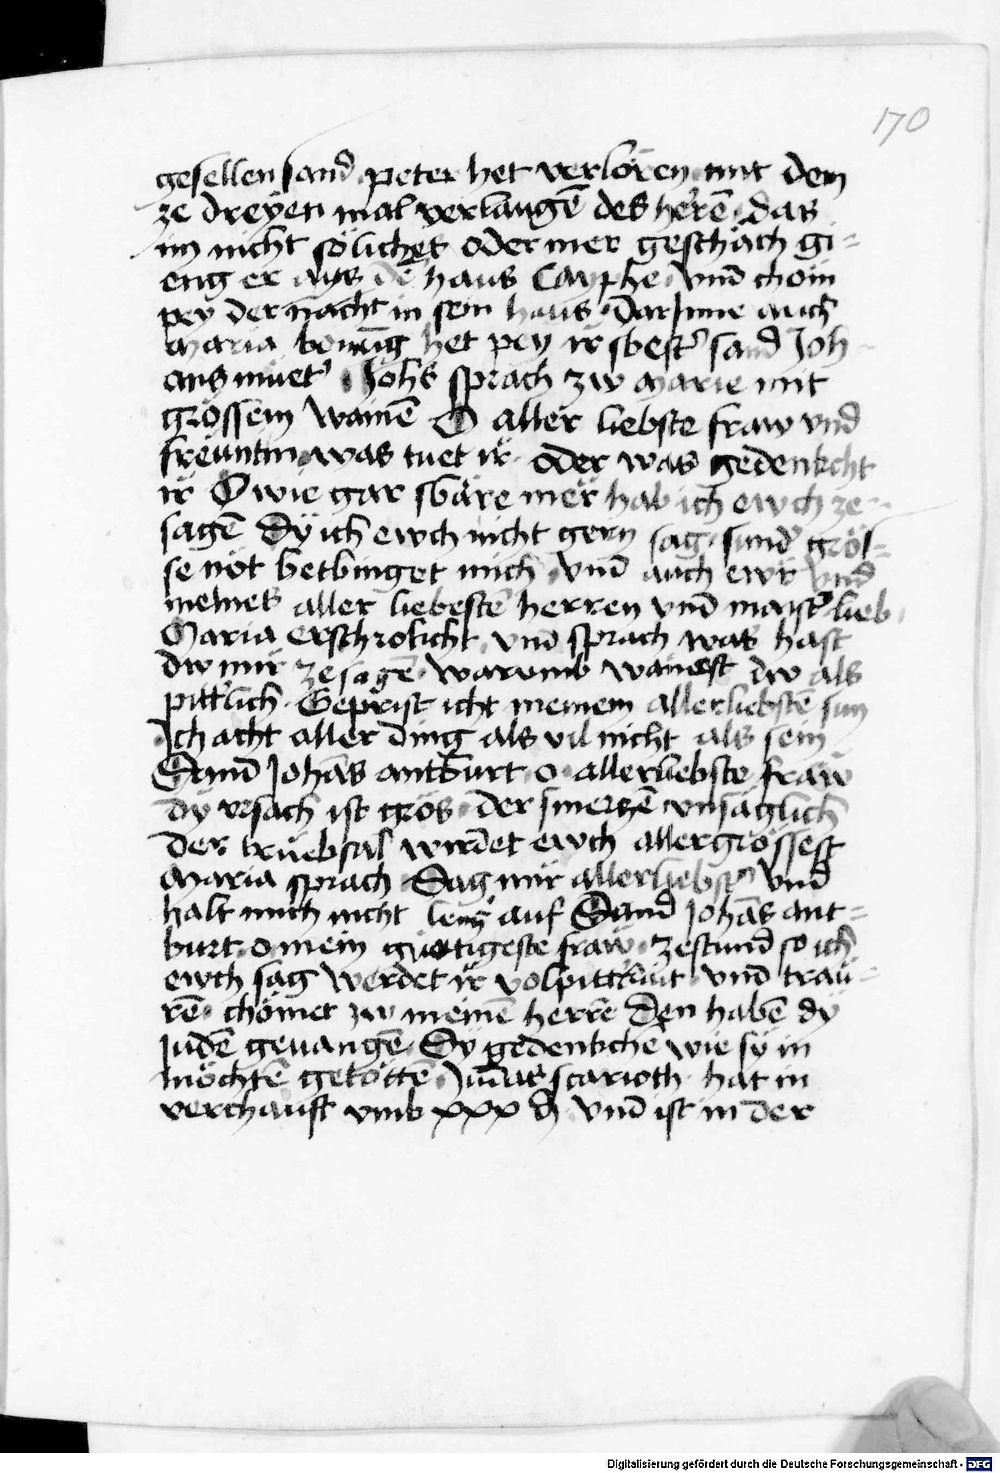 170
gesellen sand peter het verlören mit dem
ze dreyen mal verlaugē des herrē das
im nicht sölichet oder mer geschäch gi=
eng er aus dē haus Cayphe vnd chom
pey der nacht in sein haus Dar Inne auch
Maria bonūg het pey ir sbest' sand Joh
ans müet' Johs sprach zw Marie mit
grossem wainē O aller liebste fraw vnd
freuntin was tuet ir oder was gedenkcht
ir O wie gar sbäre mer hab ich ewch ze
sagē Dy ich ewch nicht gern sag sund' grös=
se nöt betbinget mich vnd auch ewr vnd
meines aller liebestē herren vnd maist' lieb
Maria erschrokcht vnd sprach was hast
dw mir ze sagē warumb wainest dw als
pittlich Geprist icht meinem allerliebstē sun
Ich acht aller ding als vil nicht als sein
Sand Johās antburt o allerliebste fraw
dy vrsach ist grös der smerczē vnsäglich
der trüebsal wirdet ewch allergrössest
Maria sprach Sag mir allerliebst' vnd
halt mich nicht leng' auf Sand Johās ant=
burt o mein güetigeste fraw zestund so ich
ewch sag werdet ir vol pittrkait vnd trau=
rē chömet zw meinē herrē Den habē dy
judē geuangē Sy gedenkchē wie sy in
möchtē getöttē Judas scarioth hat in
verchauft vmb xxx d vnd ist in der
Digitalisierung gefördert durch die Deutsche Forschungsgemeinschaft - DFG